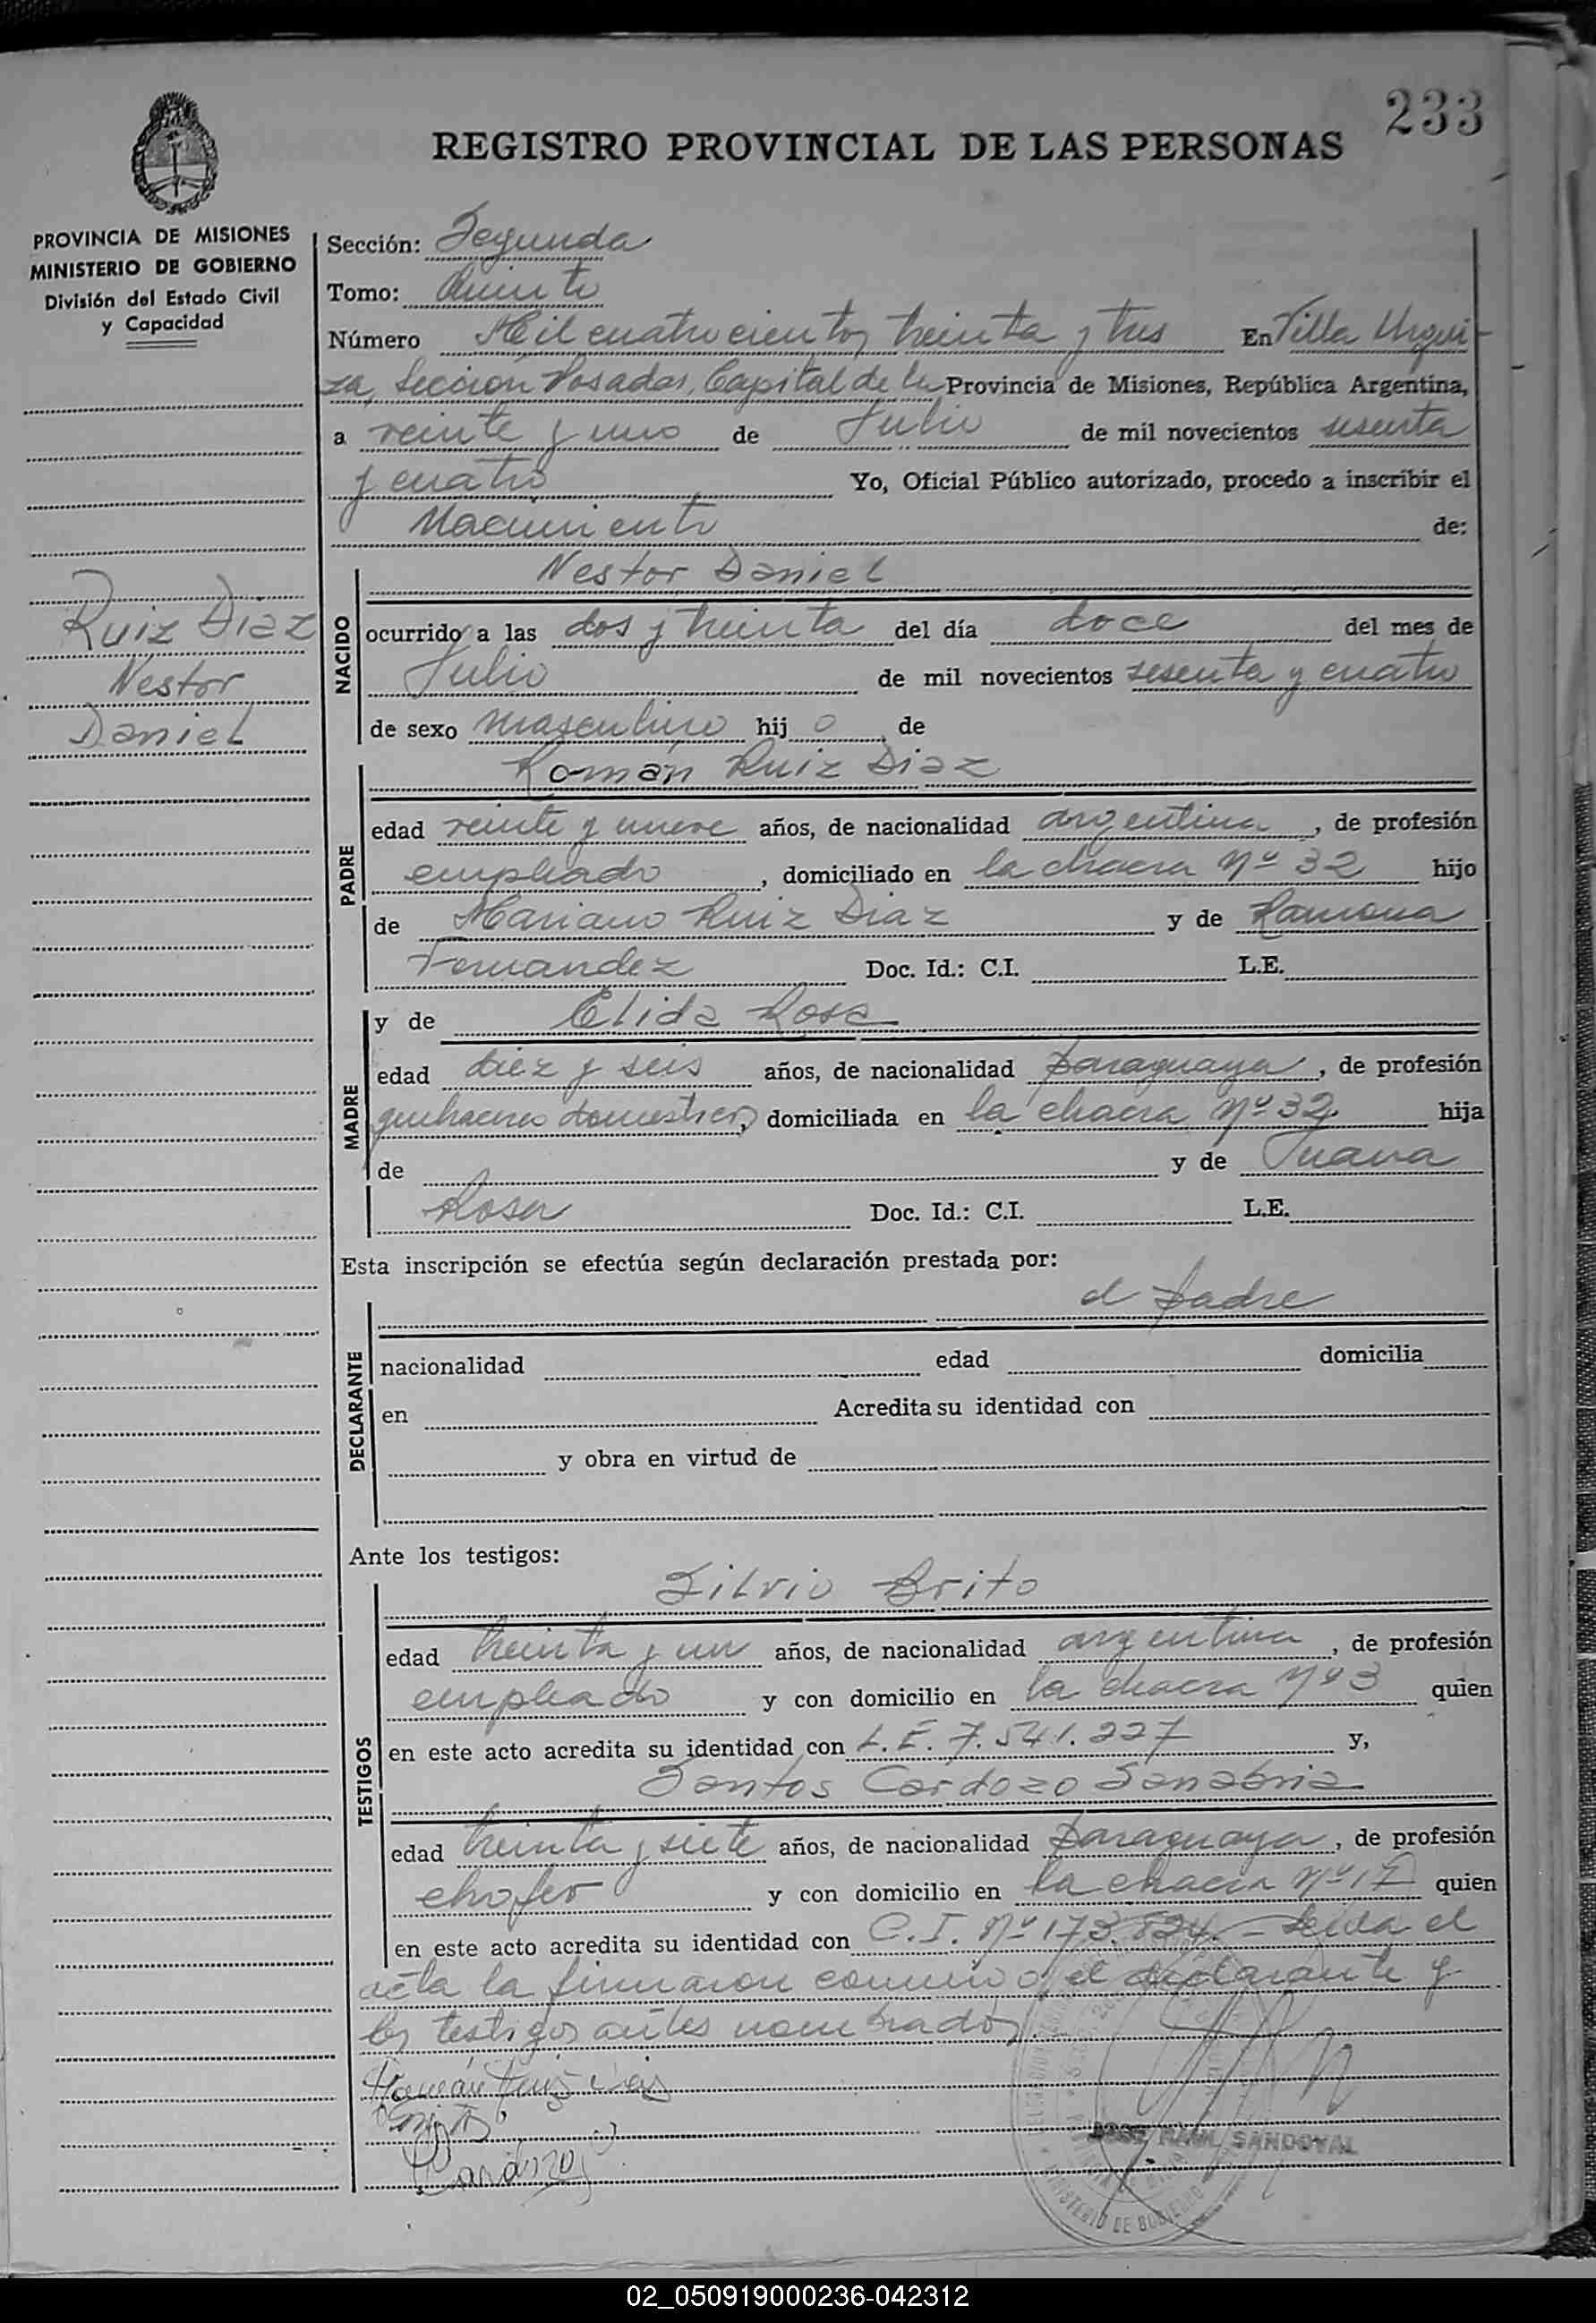 233
REGISTRO PROVINCIAL DE LAS PERSONAS
PROVINCIA DE MISIONES
MINISTERIO DE GOBIERNO
División del Estado Civil
y Capacidad
Ruiz Diaz
Nestor
Daniel
Sección: Segunda
Tomo: Quinto
Número Mil cuatrocientos treinta y tres En Villa Urqui-
za, Sección Posadas, Capital de la Provincia de Misiones, República Argentina,
a veinte y uno de Julio de mil novecientos sesenta
y cuatro Yo, Oficial Público autorizado, procedo a inscribir el
Nacimiento de:
NACIDO
Nestor Daniel
ocurrido a las dos y treinta del día doce del mes de
Julio de mil novecientos sesenta y cuatro
de sexo masculino hij o de
PADRE
Román Ruiz Diaz
edad veinte y nueve años, de nacionalidad argentina, de profesión
empleado, domiciliado en la chacra Nº 32 hijo
de Mariano Ruiz Diaz y de Ramona
Fernandez Doc. Id.: C.I. L.E.
MADRE
y de Elida Rosa
edad diez y seis años, de nacionalidad paraguaya, de profesión
quehaceres domesticos, domiciliada en la chacra Nº 32 hija
de y de Juana
Rosa Doc. Id.: C.I. L.E.
Esta inscripción se efectúa según declaración prestada por:
DECLARANTE
el padre
nacionalidad edad domicilia
en Acredita su identidad con
y obra en virtud de
Ante los testigos:
TESTIGOS
Silvio Brito
edad treinta y un años, de nacionalidad argentina, de profesión
empleado y con domicilio en la chacra Nº 3 quien
en este acto acredita su identidad con L.E. 7.541.227 y,
Santos Cardozo Sanabria
edad treinta y siete años, de nacionalidad paraguaya, de profesión
chofer y con domicilio en la chacra Nº 17 quien
en este acto acredita su identidad con C.I. Nº 173.824.- Leida el
acta la firmaron conmigo, el declarante y
los testigos antes nombrados.
Román Ruiz Diaz
Cardozo
JOSE RAUL SANDOVAL
MINISTERIO DE GOBIERNO
02_050919000236-042312